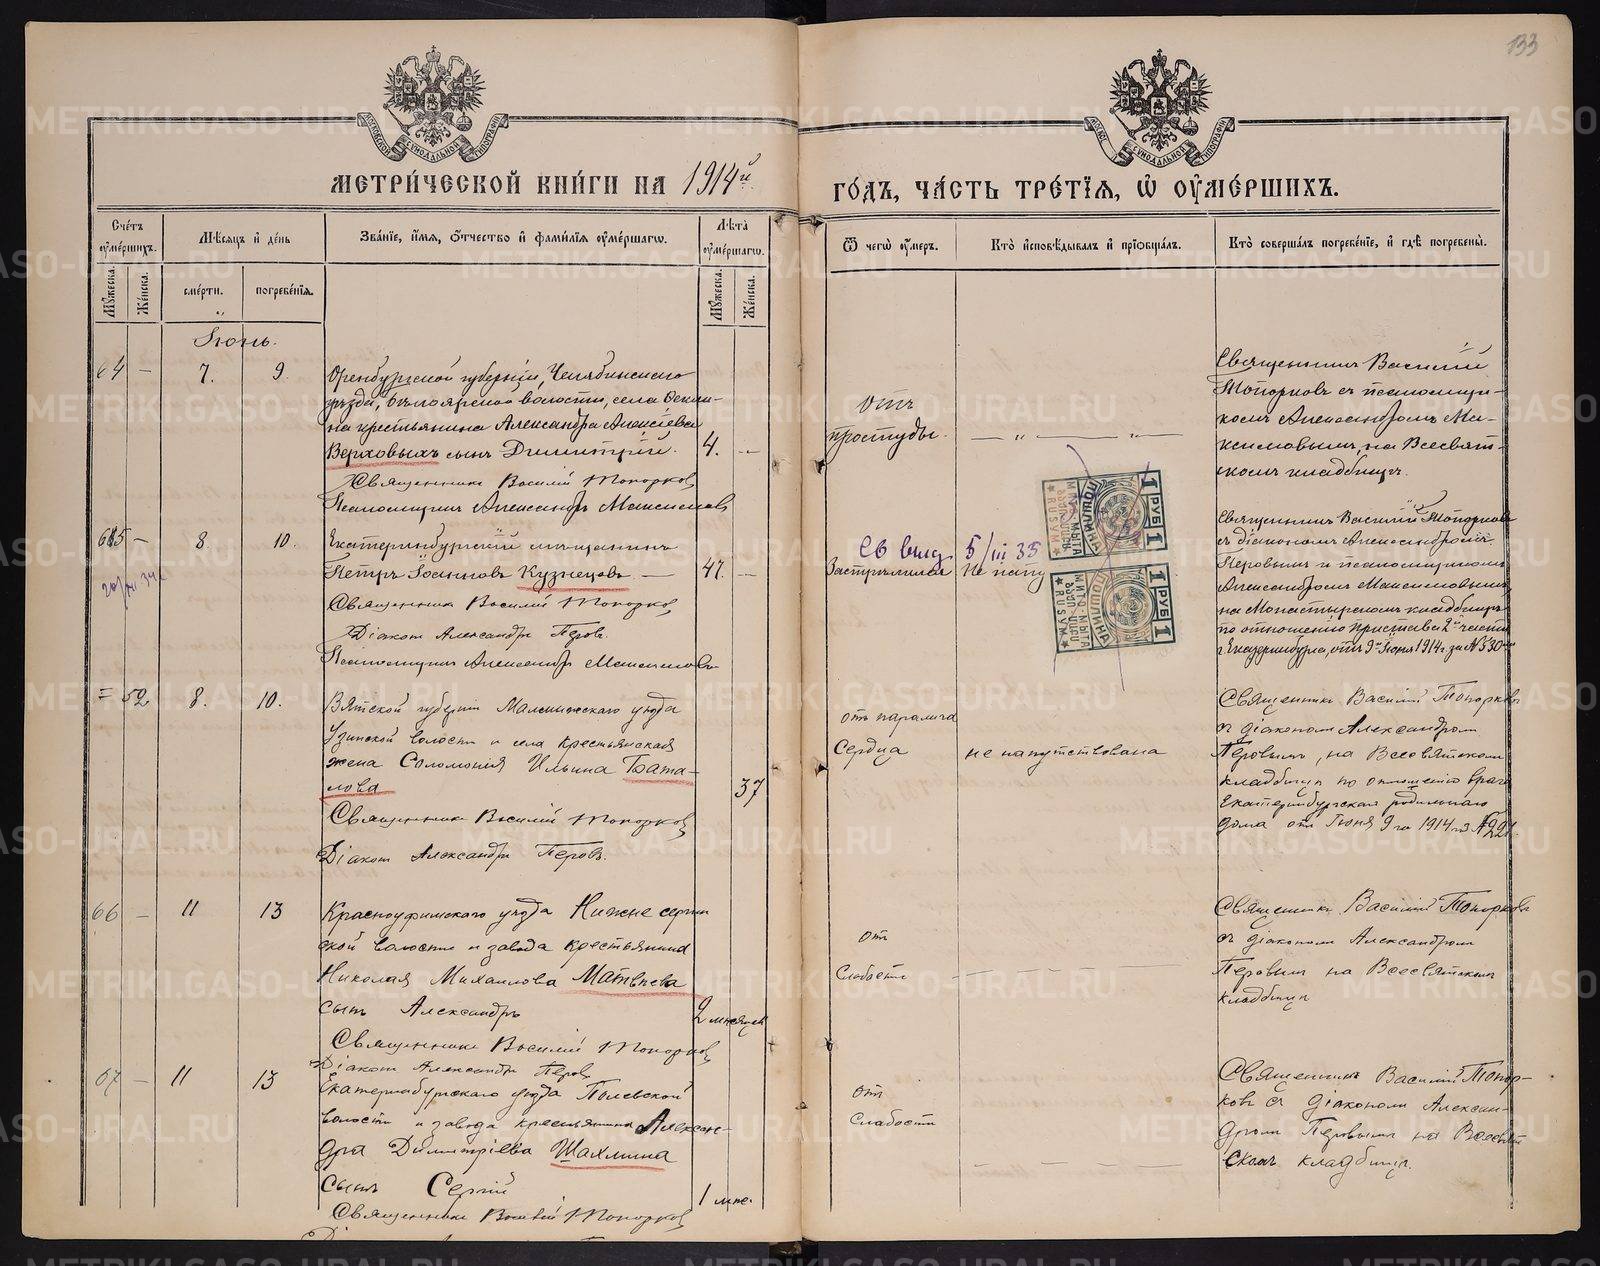 133
МЕТРИ́ЧЕСКОЙ КНИ́ГИ НА 1914й
ГО́ДЪ, ЧА́СТЬ ТРЕ́ТІѦ, Ѿ ОУМЕ́РШИХЪ.
Сче́тъ оумершихъ.
Мужеска.
Же́нска.
Мѣ́сяцъ и де́нь
сме́рти.
погребе́нія.
Зва́ніе, и́мя, о́тчество и фами́лія оумершаго.
Лѣта̀ оумершаго.
Мужеска.
Же́нска.
Ѿ чегѡ оумеръ.
Кто̀ исповѣдывалъ и пріобща́лъ.
Кто̀ соверша́лъ погребе́ніе, и гдѣ̀ погребены̀.
Іюнь.
64 — 7. 9.
Оренбургской губерніи, Челябинскаго
уѣзда, Бѣлоярской волости, села
на крестьянина Александра Алексіева
Верховыхъ сынъ Димитрій. 4. —
Священникъ Василій Топорковъ
Псаломщикъ Александръ Максимовъ
отъ
простуды.
— „ — „ —
Священникъ Василій
Топорковъ съ псаломщи-
комъ Александромъ Ма-
ксимовымъ, на Всесвят-
скомъ кладбищѣ.
65 — 8. 10.
Екатеринбургскій мѣщанинъ
Петръ Іоанновъ Кузнецовъ — 47. —
Священникъ Василій Топорков
Діаконъ Александръ Перовъ.
Псаломщикъ Александръ Максимовъ
Св выд 5/III 35
Застрѣлился
Не напу
1 РУБ. 1
ПОШЛИНА
1 РУБ. 1
ПОШЛИНА
Священникъ Василій Топорковъ
съ діакономъ Александромъ
Перовымъ и псаломщикомъ
Александромъ Максимовымъ
на Монастырскомъ кладбищѣ
по отношенію Пристава 2й части
г. Екатеринбурга, отъ 9го Іюня 1914 г. за №
= 52 8. 10.
Вятской губерніи Малмыжскаго уѣзда
Узинской волости и села крестьянская
жена Соломонія Ильина Бата-
лова 37
Священникъ Василій Топорковъ
Діаконъ Александръ Перовъ.
отъ паралича
Сердца
не напутствована
Священникъ Василій Топорковъ
съ діакономъ Александромъ
Перовымъ, на Всесвятском
кладбищѣ по отношенію врача
Екатеринбургскаго родильнаго
дома отъ Іюня 9го 1914 г. за №
66 — 11 13
Красноуфимскаго уѣзда Нижне серги
ской волости и завода крестьянина
Николая Михаилова Матвѣева
сынъ Александръ 2 мѣсяцев
Священникъ Василій Топорков
Діаконъ Александръ Перовъ
От
Слабости
Священникъ Василій Топорковъ
съ діакономъ Александромъ
Перовымъ на Всесвятскомъ
кладбищѣ
67 — 11 13
Екатеринбургскаго уѣзда Полевской
волости и завода крестьянина Алексан-
дра Димитріева Шахмина
сынъ Сергій 1 мѣс.
Священникъ Василій Топорков
От
Слабости
Священникъ Василій Топор-
ковъ съ діакономъ Алексан-
дромъ Перовымъ на Всесвят
скомъ кладбищѣ.
METRIKI.GASO-URAL.RU